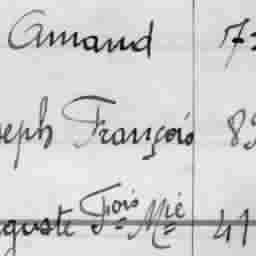 Amand 17
seph François 8
guste Fois Mie 41